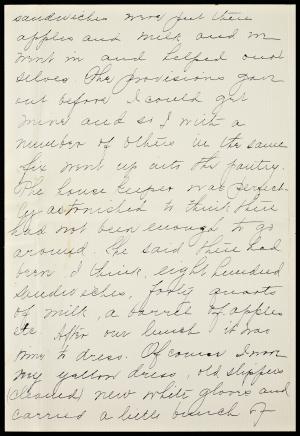 sandwiches were put there
apples and milk and we
went in and helped our
selves. The provisions gave
out before I could get
mine and so I with a
number of others in the same
fix went up into the pantry.
The house keeper was perfect-
ly astonished to think there
had not been enough to go
around. She said there had
been I think, eight hundred
sandwiches, forty quarts
of milk, a barrel of apples
etc. After our lunch it was
time to dress. Of course I wore
my yellow dress, old slippers
(cleaned) new white gloves and
carried a little bunch of